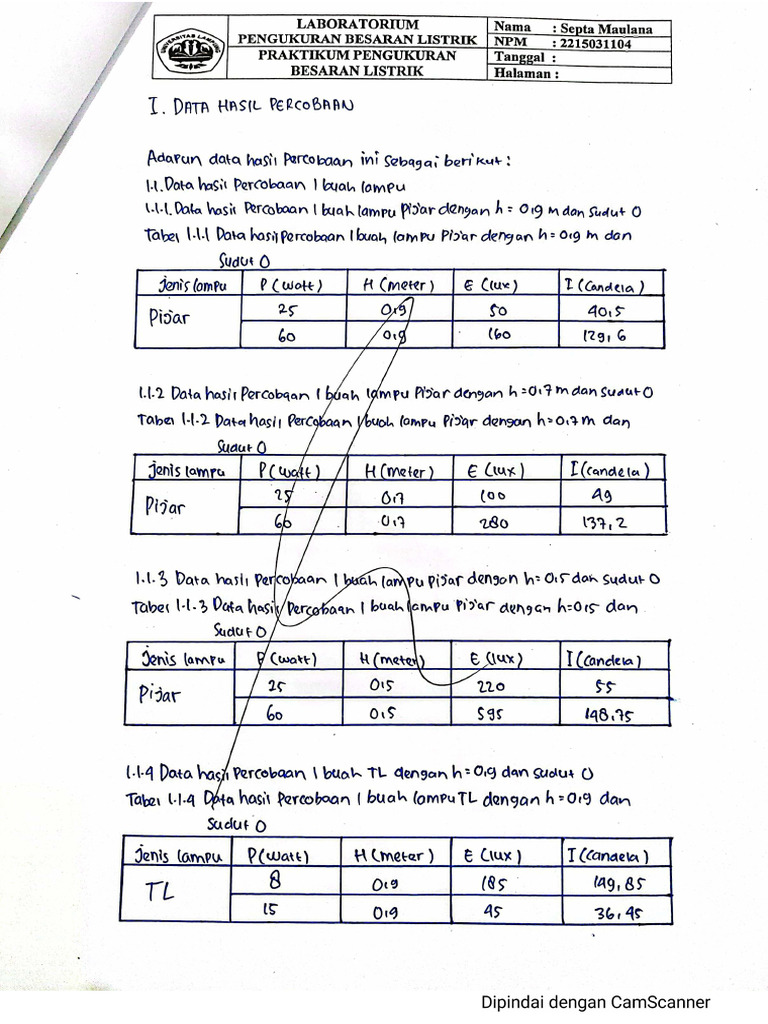 UNIVERSITAS LAMPUNG
LABORATORIUM
PENGUKURAN BESARAN LISTRIK
PRAKTIKUM PENGUKURAN
BESARAN LISTRIK
Nama : Septa Maulana
NPM : 2215031104
Tanggal :
Halaman :
I. DATA HASIL PERCOBAAN
Adapun data hasil Percobaan ini sebagai berikut :
1.1. Data hasil Percobaan 1 buah lampu
1.1.1. Data hasil Percobaan 1 buah lampu Pijar dengan h = 0,9 m dan Sudut 0
Tabel 1.1.1 Data hasil Percobaan 1 buah lampu Pijar dengan h = 0,9 m dan
Sudut 0
Jenis lampu P (watt) H (meter) E (lux) I (Candela)
Pijar 25 0,9 50 40,5
60 0,9 160 129,6
1.1.2 Data hasil Percobaan 1 buah lampu Pijar dengan h = 0,7 m dan sudut 0
Tabel 1.1.2 Data hasil Percobaan 1 buah lampu Pijar dengan h = 0,7 m dan
Sudut 0
Jenis lampu P (watt) H (meter) E (lux) I (candela)
Pijar 25 0,7 100 49
60 0,7 280 137,2
1.1.3 Data hasil Percobaan 1 buah lampu Pijar dengan h = 0,5 dan sudut 0
Tabel 1.1.3 Data hasil Percobaan 1 buah lampu Pijar dengan h = 0,5 dan
Sudut 0
Jenis lampu P (watt) H (meter) E (lux) I (Candela)
Pijar 25 0,5 220 55
60 0,5 595 148,75
1.1.4 Data hasil Percobaan 1 buah TL dengan h = 0,9 dan sudut 0
Tabel 1.1.4 Data hasil Percobaan 1 buah lampu TL dengan h = 0,9 dan
Sudut 0
Jenis lampu P (watt) H (meter) E (lux) I (Candela)
TL 8 0,9 185 149,85
15 0,9 45 36,45
Dipindai dengan CamScanner